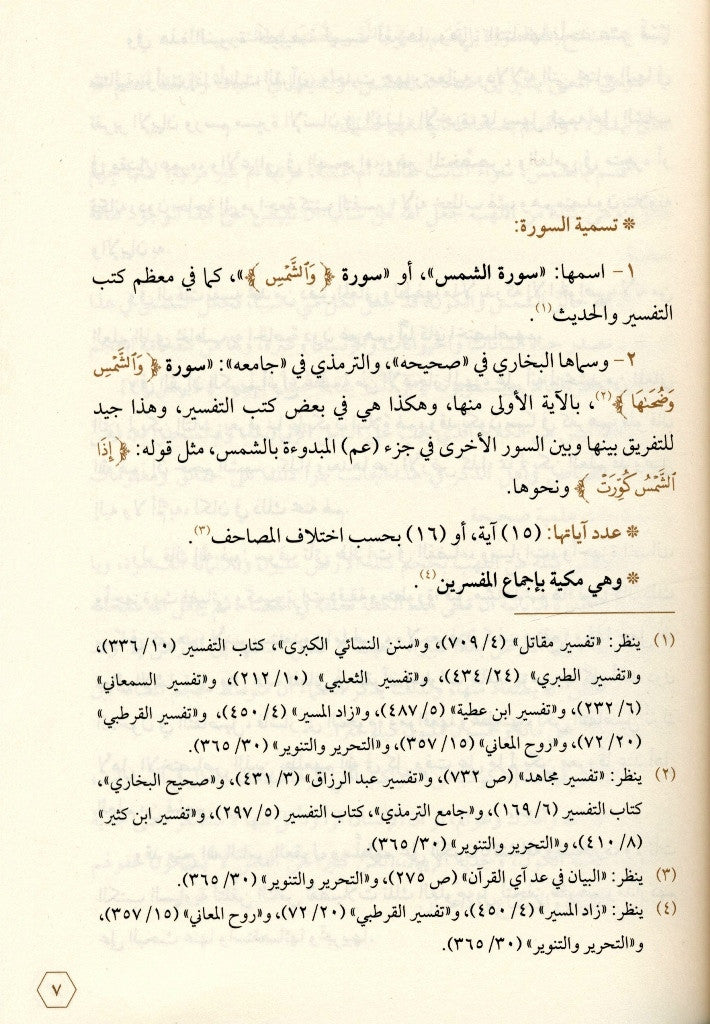 * تسمية السورة:
١- اسمها: «سورة الشمس»، أو «سورة ﴿ وَٱلشَّمْسِ ﴾»، كما في معظم كتب
التفسير والحديث(١).
٢- وسماها البخاري في «صحيحه»، والترمذي في «جامعه»: «سورة ﴿ وَٱلشَّمْسِ
وَضُحَىٰهَا ﴾»(٢)، بالآية الأولى منها، وهكذا هي في بعض كتب التفسير، وهذا جيد
للتفريق بينها وبين السور الأخرى في جزء (عم) المبدوءة بالشمس، مثل قوله: ﴿ إِذَا
ٱلشَّمْسُ كُوِّرَتْ ﴾ ونحوها.
* عدد آياتها: (١٥) آية، أو (١٦) بحسب اختلاف المصاحف(٣).
* وهي مكية بإجماع المفسرين(٤).
(١) ينظر: «تفسير مقاتل» (٤/ ٧٠٩)، و«سنن النسائي الكبرى»، كتاب التفسير (١٠/ ٣٣٦)،
و«تفسير الطبري» (٢٤/ ٤٣٤)، و«تفسير الثعلبي» (١٠/ ٢١٢)، و«تفسير السمعاني»
(٦/ ٢٣٢)، و«تفسير ابن عطية» (٥/ ٤٨٧)، و«زاد المسير» (٤/ ٤٥٠)، و«تفسير القرطبي»
(٢٠/ ٧٢)، و«روح المعاني» (١٥/ ٣٥٧)، و«التحرير والتنوير» (٣٠/ ٣٦٥).
(٢) ينظر: «تفسير مجاهد» (ص ٧٣٢)، و«تفسير عبد الرزاق» (٣/ ٤٣١)، و«صحيح البخاري»،
كتاب التفسير (٦/ ١٦٩)، و«جامع الترمذي»، كتاب التفسير (٥/ ٢٩٧)، و«تفسير ابن كثير»
(٨/ ٤١٠)، و«التحرير والتنوير» (٣٠/ ٣٦٥).
(٣) ينظر: «البيان في عد آي القرآن» (ص ٢٧٥)، و«التحرير والتنوير» (٣٠/ ٣٦٥).
(٤) ينظر: «زاد المسير» (٤/ ٤٥٠)، و«تفسير القرطبي» (٢٠/ ٧٢)، و«روح المعاني» (١٥/ ٣٥٧)،
و«التحرير والتنوير» (٣٠/ ٣٦٥).
٧